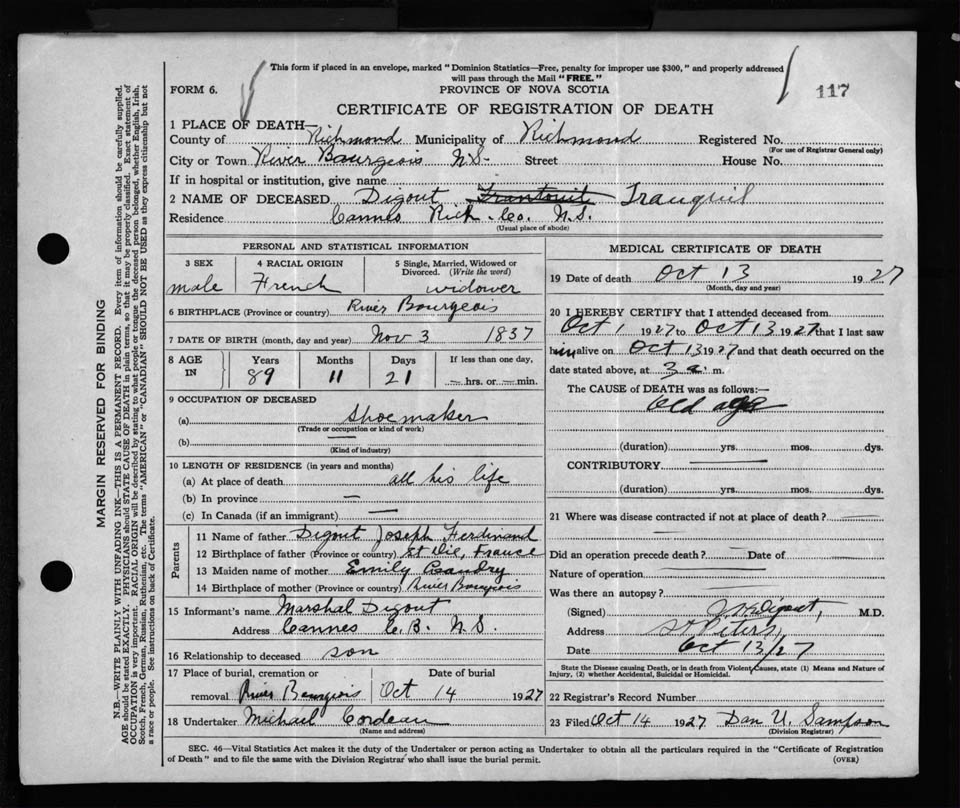 This form if placed in an envelope, marked "Dominion Statistics—Free, penalty for improper use $300," and properly addressed
will pass through the Mail "FREE."
FORM 6.
PROVINCE OF NOVA SCOTIA
117
CERTIFICATE OF REGISTRATION OF DEATH
1 PLACE OF DEATH—
County of Richmond Municipality of Richmond Registered No.
(For use of Registrar General only)
City or Town River Bourgeois N.S. Street House No.
If in hospital or institution, give name
2 NAME OF DECEASED Digout Tranquil
Residence Cannes Rich. Co. N.S.
(Usual place of abode)
PERSONAL AND STATISTICAL INFORMATION
3 SEX 4 RACIAL ORIGIN 5 Single, Married, Widowed or
Divorced. (Write the word)
male French widower
6 BIRTHPLACE (Province or country) River Bourgeois
7 DATE OF BIRTH (month, day and year) Nov 3 1837
8 AGE IN Years Months Days If less than one day,
89 11 21 — hrs. or — min.
9 OCCUPATION OF DECEASED
(a) Shoemaker
(Trade or occupation or kind of work)
(b) —
(Kind of industry)
10 LENGTH OF RESIDENCE (in years and months)
(a) At place of death all his life
(b) In province —
(c) In Canada (if an immigrant) —
Parents
11 Name of father Digout Joseph Ferdinand
12 Birthplace of father (Province or country) St Die, France
13 Maiden name of mother Emily Landry
14 Birthplace of mother (Province or country) River Bourgeois
15 Informant's name Marshal Digout
Address Cannes C.B. N.S.
16 Relationship to deceased son
17 Place of burial, cremation or Date of burial
removal River Bourgeois Oct 14 1927
18 Undertaker Michael Cordeau
(Name and address)
MEDICAL CERTIFICATE OF DEATH
19 Date of death Oct 13 1927
(Month, day and year)
20 I HEREBY CERTIFY that I attended deceased from
Oct 1 1927 to Oct 13 1927 that I last saw
him alive on Oct 13 1927 and that death occurred on the
date stated above, at 3 a. m.
The CAUSE of DEATH was as follows:—
Old age
(duration) yrs. mos. dys.
CONTRIBUTORY —
(duration) yrs. mos. dys.
21 Where was disease contracted if not at place of death? —
Did an operation precede death? — Date of
Nature of operation —
Was there an autopsy? —
(Signed) Digout, M.D.
Address St Peters,
Date Oct 13/27
State the Disease causing Death, or in death from Violent Causes, state (1) Means and Nature of
Injury, (2) whether Accidental, Suicidal or Homicidal.
22 Registrars Record Number
23 Filed Oct 14 1927 Dan U. Sampson
(Division Registrar)
SEC. 46—Vital Statistics Act makes it the duty of the Undertaker or person acting as Undertaker to obtain all the particulars required in the "Certificate of Registration
of Death" and to file the same with the Division Registrar who shall issue the burial permit.
(OVER)
MARGIN RESERVED FOR BINDING
N.B.—WRITE PLAINLY WITH UNFADING INK—THIS IS A PERMANENT RECORD. Every item of information should be carefully supplied.
AGE should be stated EXACTLY. PHYSICIANS should STATE CAUSE OF DEATH in plain terms, so that it may be properly classified. Exact statement of
OCCUPATION is very important. RACIAL ORIGIN will be described by stating to what people or tongue the deceased person belonged, whether English, Irish,
Scotch, French, German, Russian, Ruthenian, etc. The terms "AMERICAN" or "CANADIAN" SHOULD NOT BE USED as they express citizenship but not
a race or people. See instructions on back of Certificate.